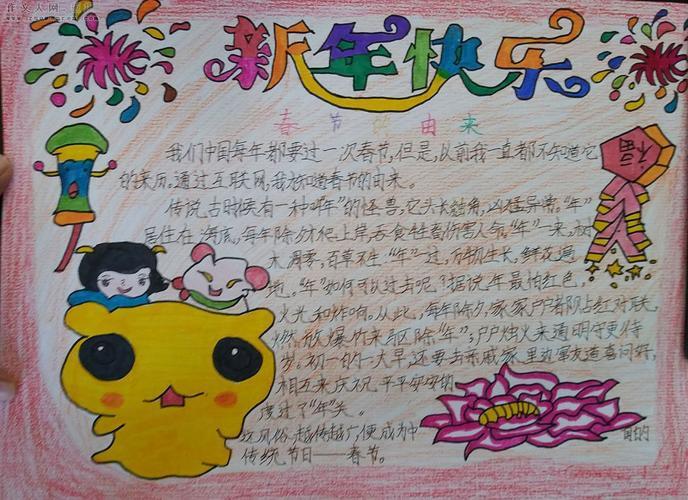 作文大网
新年快乐
春节的由来
我们中国每年都要过一次春节,但是,以前我一直都不知道它
的来历。通过互联网,我才知道春节的由来。
传说古时候有一种叫"年"的怪兽,它头长触角,凶猛异常。"年"
居住在海底,每年除夕才爬上岸,吞食牲畜伤害人命"年"一来,树
木凋零,百草不生,"年"一过,万物生长,鲜花遍
地。"年"如何可以过去呢?据说,年最怕红色,
火光和炸响。从此,每年除夕,家家户户都贴红对联,
燃放爆竹来驱除"年";户户烛火来通明守更待
岁。初一的一大早,还要去亲戚家里边朋友道喜问好,
相互来庆祝平平安安的
度过了"年"关。
这风俗越传越广,便成为中
国的
传统节日——春节。
福